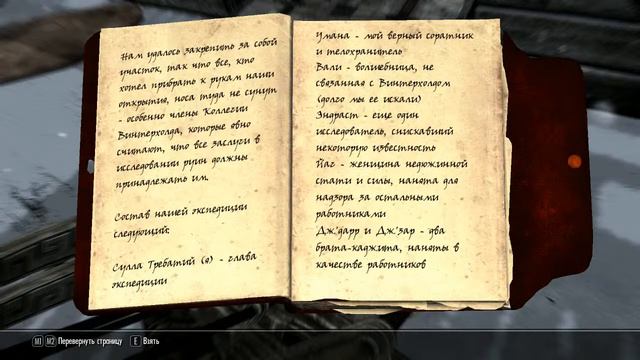 Нам удалось закрепить за собой
участок, так что все, кто
хотел прибрать к рукам наши
открытия, носа туда не сунут
- особенно члены Коллегии
Винтерхолда, которые явно
считают, что все заслуги в
исследовании руин должны
принадлежать им.
Состав нашей экспедиции
следующий:
Сулла Требатий (я) - глава
экспедиции
Умана - мой верный соратник
и телохранитель
Вали - волшебница, не
связанная с Винтерхолдом
(долго мы ее искали)
Эндраст - еще один
исследователь, снискавший
некоторую известность
Яг - женщина недюжинной
стати и силы, нанята для
надзора за остальными
работниками
Дж'дарр и Дж'зар - два
брата-каджита, наняты в
качестве работников
M1 M2 Перевернуть страницу E Взять